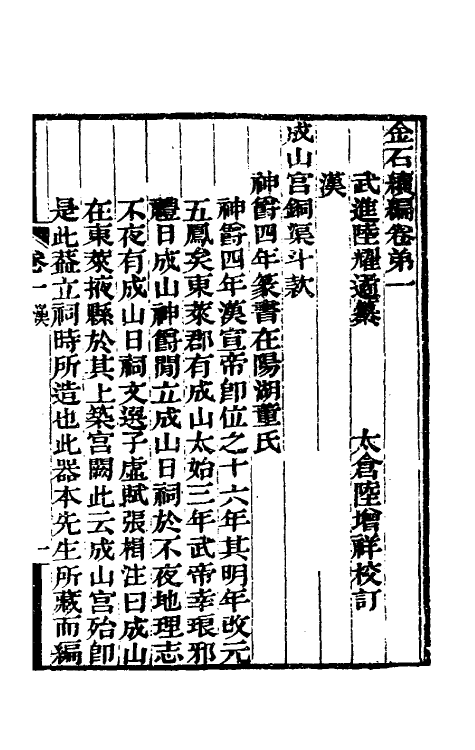 金石續編卷第一
武進陸耀遹纂　太倉陸增祥校訂
漢
成山宮銅渠斗款
神爵四年篆書在陽湖董氏
神爵四年漢宣帝卽位之十六年其明年改元
五鳳矣東萊郡有成山太始三年武帝幸琅邪
禮日成山神爵閒立成山日祠於不夜地理志
不夜有成山日祠文選子虛賦張楫注曰成山
在東萊掖縣於其上築宮闕此云成山宮殆卽
是此葢立祠時所造也此器本先生所藏而編
卷一漢
一